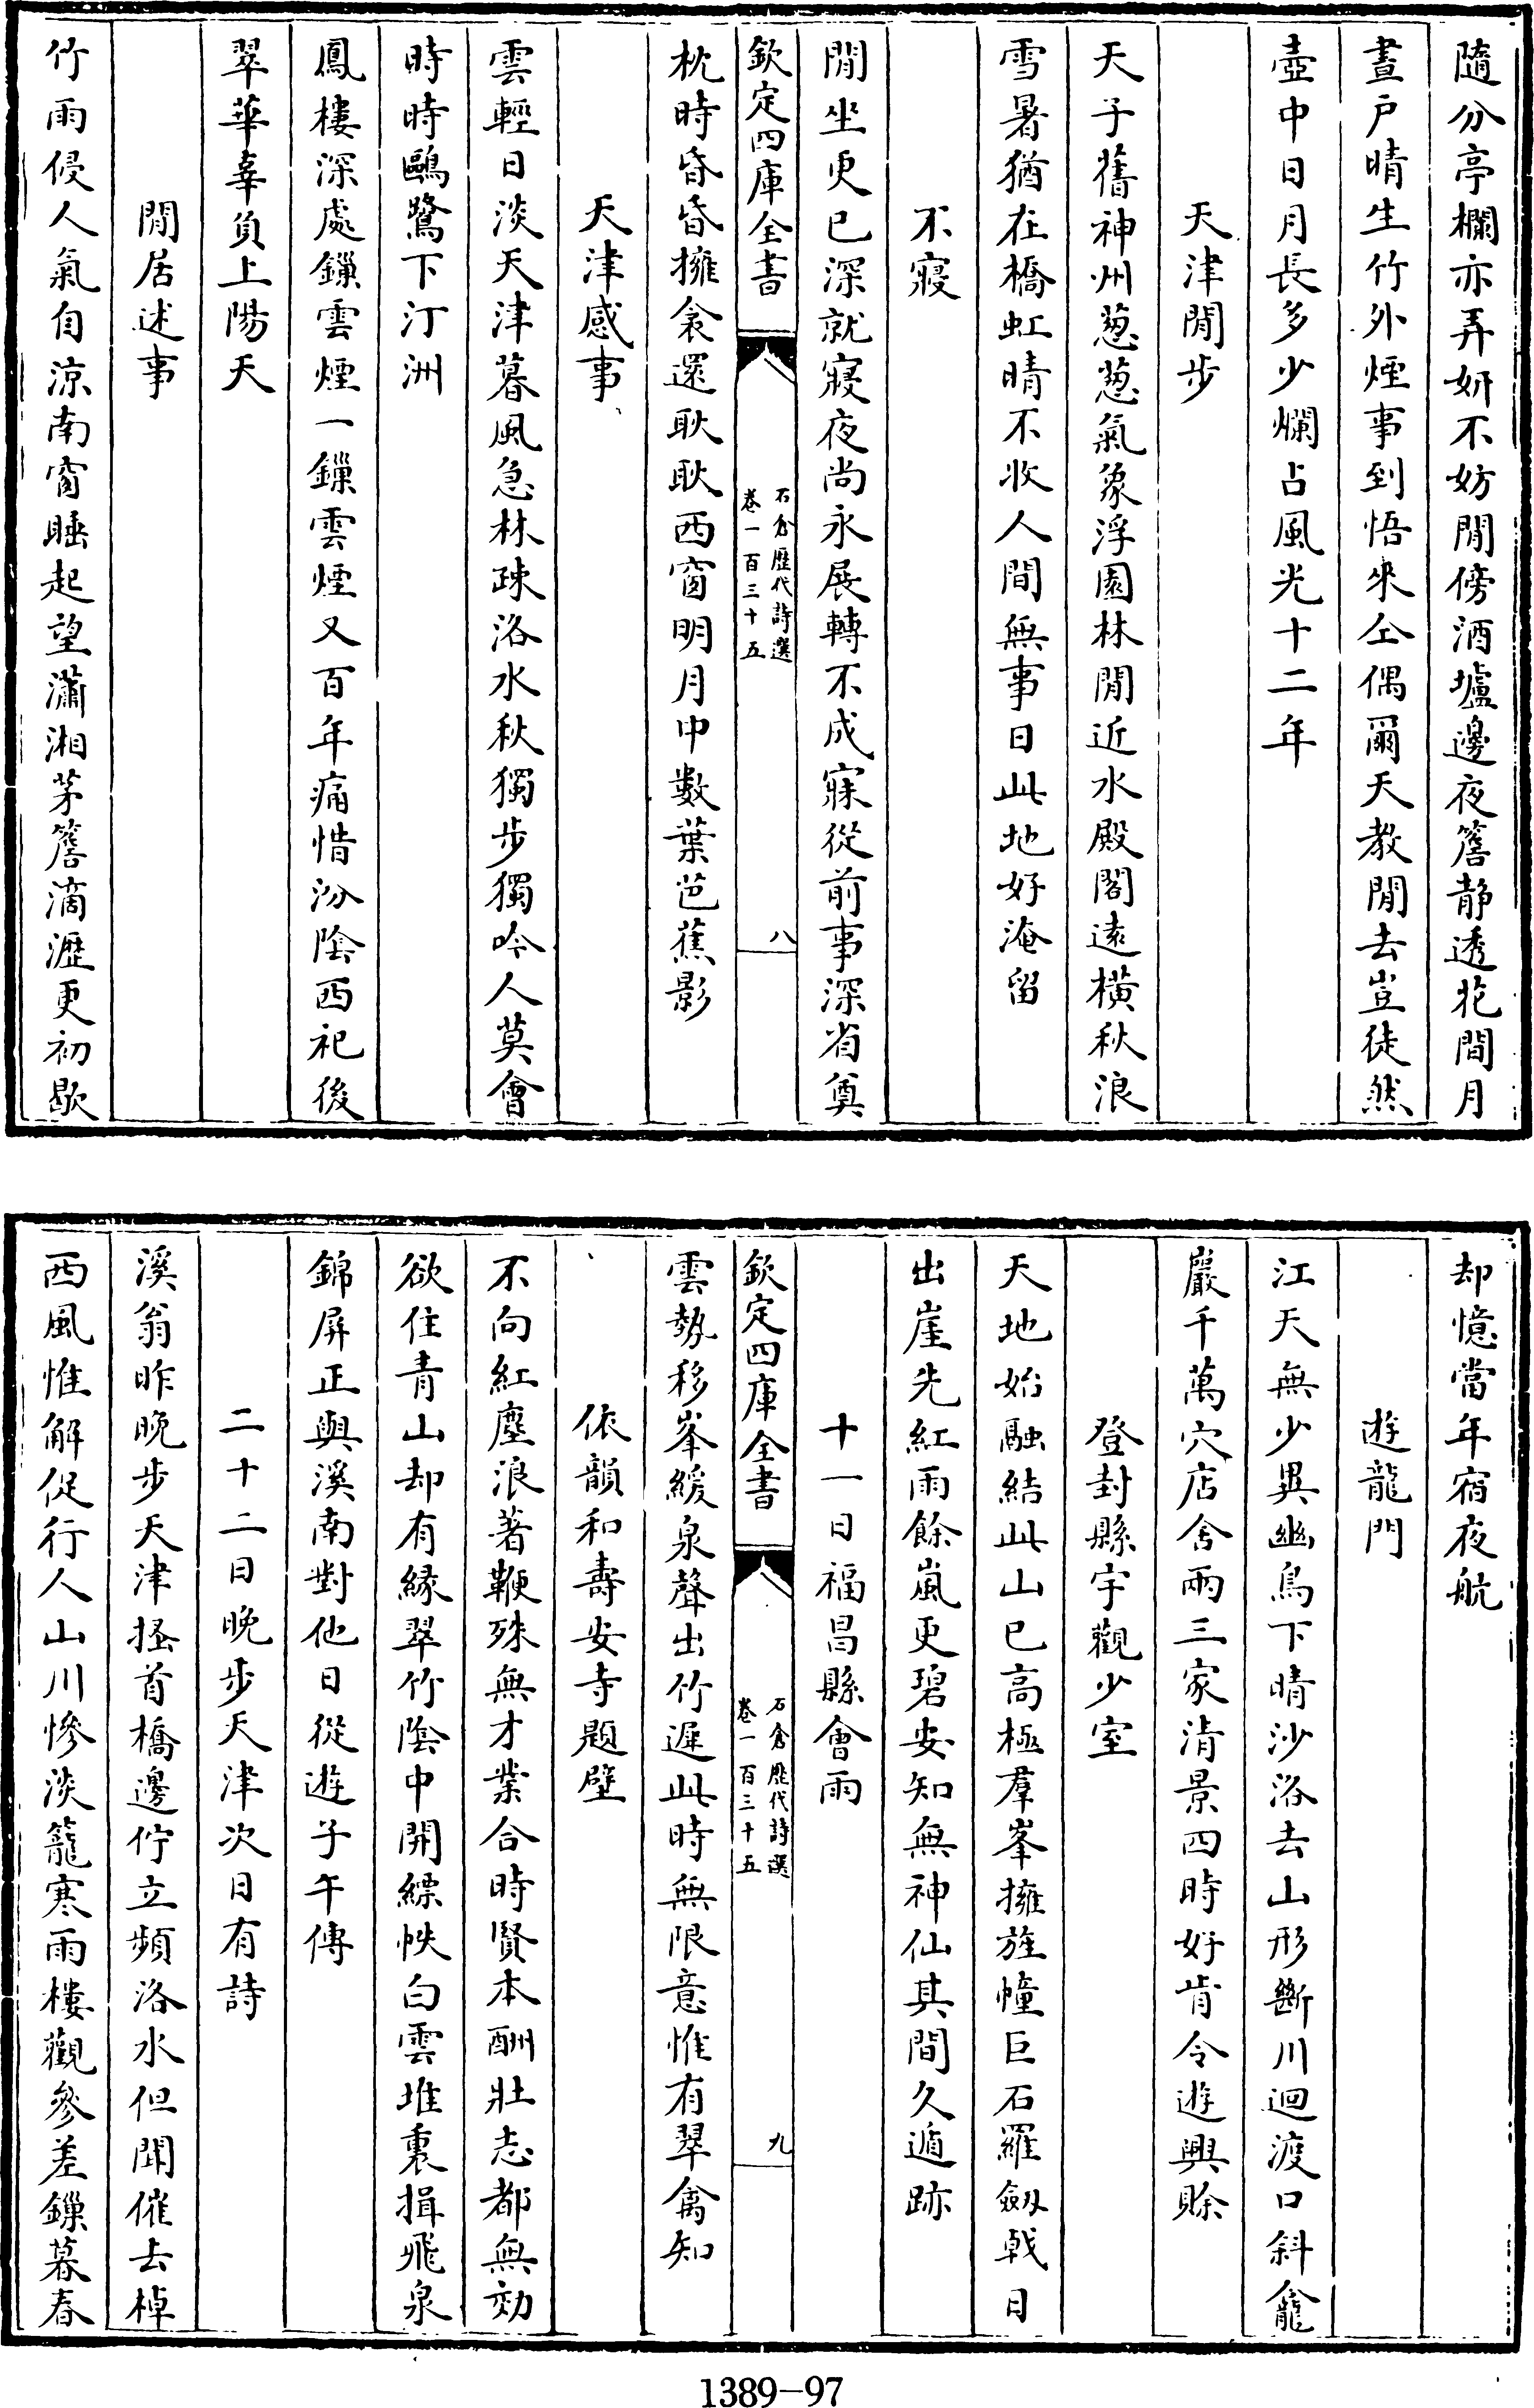 隨分亭欄亦弄妍不妨閒傍酒壚邊夜簷静透花間月
晝戶晴生竹外煙事到悟來仝偶爾天教閒去豈徒然
壺中日月長多少爛占風光十二年
天津閒步
天子舊神州葱葱氣象浮園林閒近水殿閣遠橫秋浪
雪暑猶在橋虹晴不收人間無事日此地好淹留
不寢
閒坐更已深就寢夜尚永展轉不成寐從前事深省奠
欽定四庫全書
石倉歷代詩選
卷一百三十五
八
枕時昏昏擁衾還耿耿西窗明月中數葉芭蕉影
天津感事
雲輕日淡天津暮風急林疎洛水秋獨步獨吟人莫會
時時鷗鷺下汀洲
鳳樓深處鏁雲煙一鏁雲煙又百年痛惜汾隂西祀後
翠華辜負上陽天
閒居述事
竹雨侵人氣自涼南窗睡起望瀟湘茅簷滴瀝更初歇
却憶當年宿夜航
遊龍門
江天無少異幽鳥下晴沙洛去山形斷川迴渡口斜龕
巖千萬穴店舍兩三家清景四時好肯令遊興賒
登封縣宇觀少室
天地始融結此山已高極羣峯擁旌幢巨石羅劔戟日
出崖先紅雨餘嵐更碧安知無神仙其間久遁跡
十一日福昌縣會雨
欽定四庫全書
石倉歷代詩選
卷一百三十五
九
雲勢移峯緩泉聲出竹遲此時無限意惟有翠禽知
依韻和壽安寺題壁
不向紅塵浪著鞭殊無才業合時賢本酬壯志都無効
欲住青山却有緣翠竹隂中開縹帙白雲堆裏揖飛泉
錦屏正與溪南對他日從遊子午傳
二十二日晚步天津次日有詩
溪翁昨晚步天津搔首橋邊佇立頻洛水但聞催去棹
西風惟解促行人山川慘淡籠寒雨樓觀參差鏁暮春
1389-97